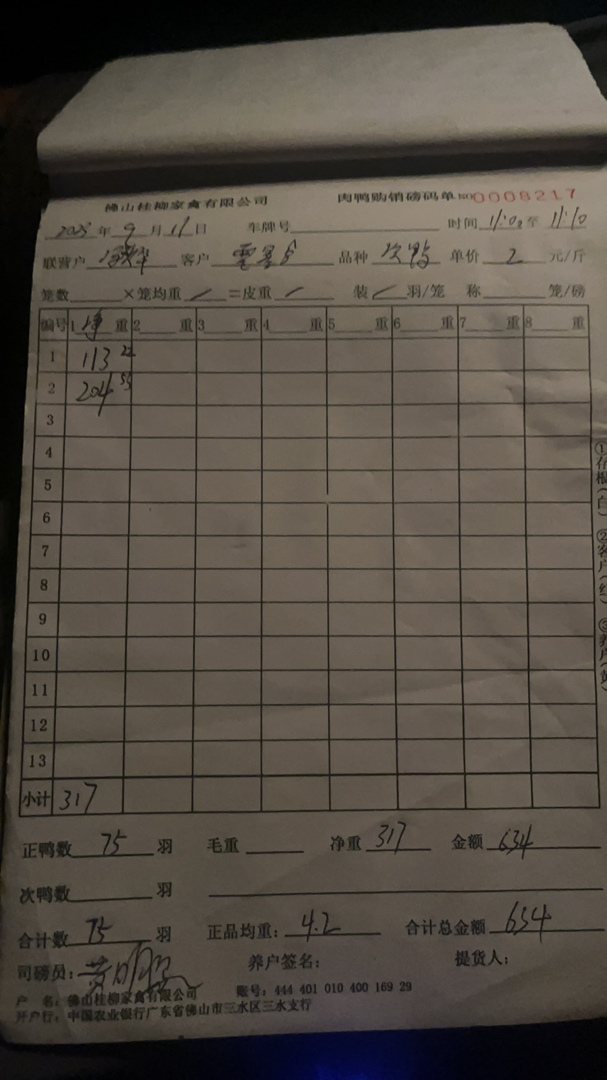 佛山桂柳家禽有限公司 肉鸭购销磅码单 NO 0008217
2025年9月11日 车牌号 时间 11:00 至 11:10
联营户 客户 品种 次鸭 单价 2 元/斤
笼数 ×笼均重 / =皮重 / 装 / 羽/笼 称 笼/磅
编号 1 净 重 2 重 3 重 4 重 5 重 6 重 7 重 8 重
1 113 22
2 204 53
3
4
5
6
7
8
9
10
11
12
13
小计 317
正鸭数 75 羽 毛重 净重 317 金额 634
次鸭数 羽
合计数 75 羽 正品均重: 4.2 合计总金额 634
司磅员: 养户签名: 提货人:
户 名: 佛山桂柳家禽有限公司 账号: 444 401 010 400 169 29
开户行: 中国农业银行广东省佛山市三水区三水支行
①存根(白) ②客户(红) ③养户(黄)